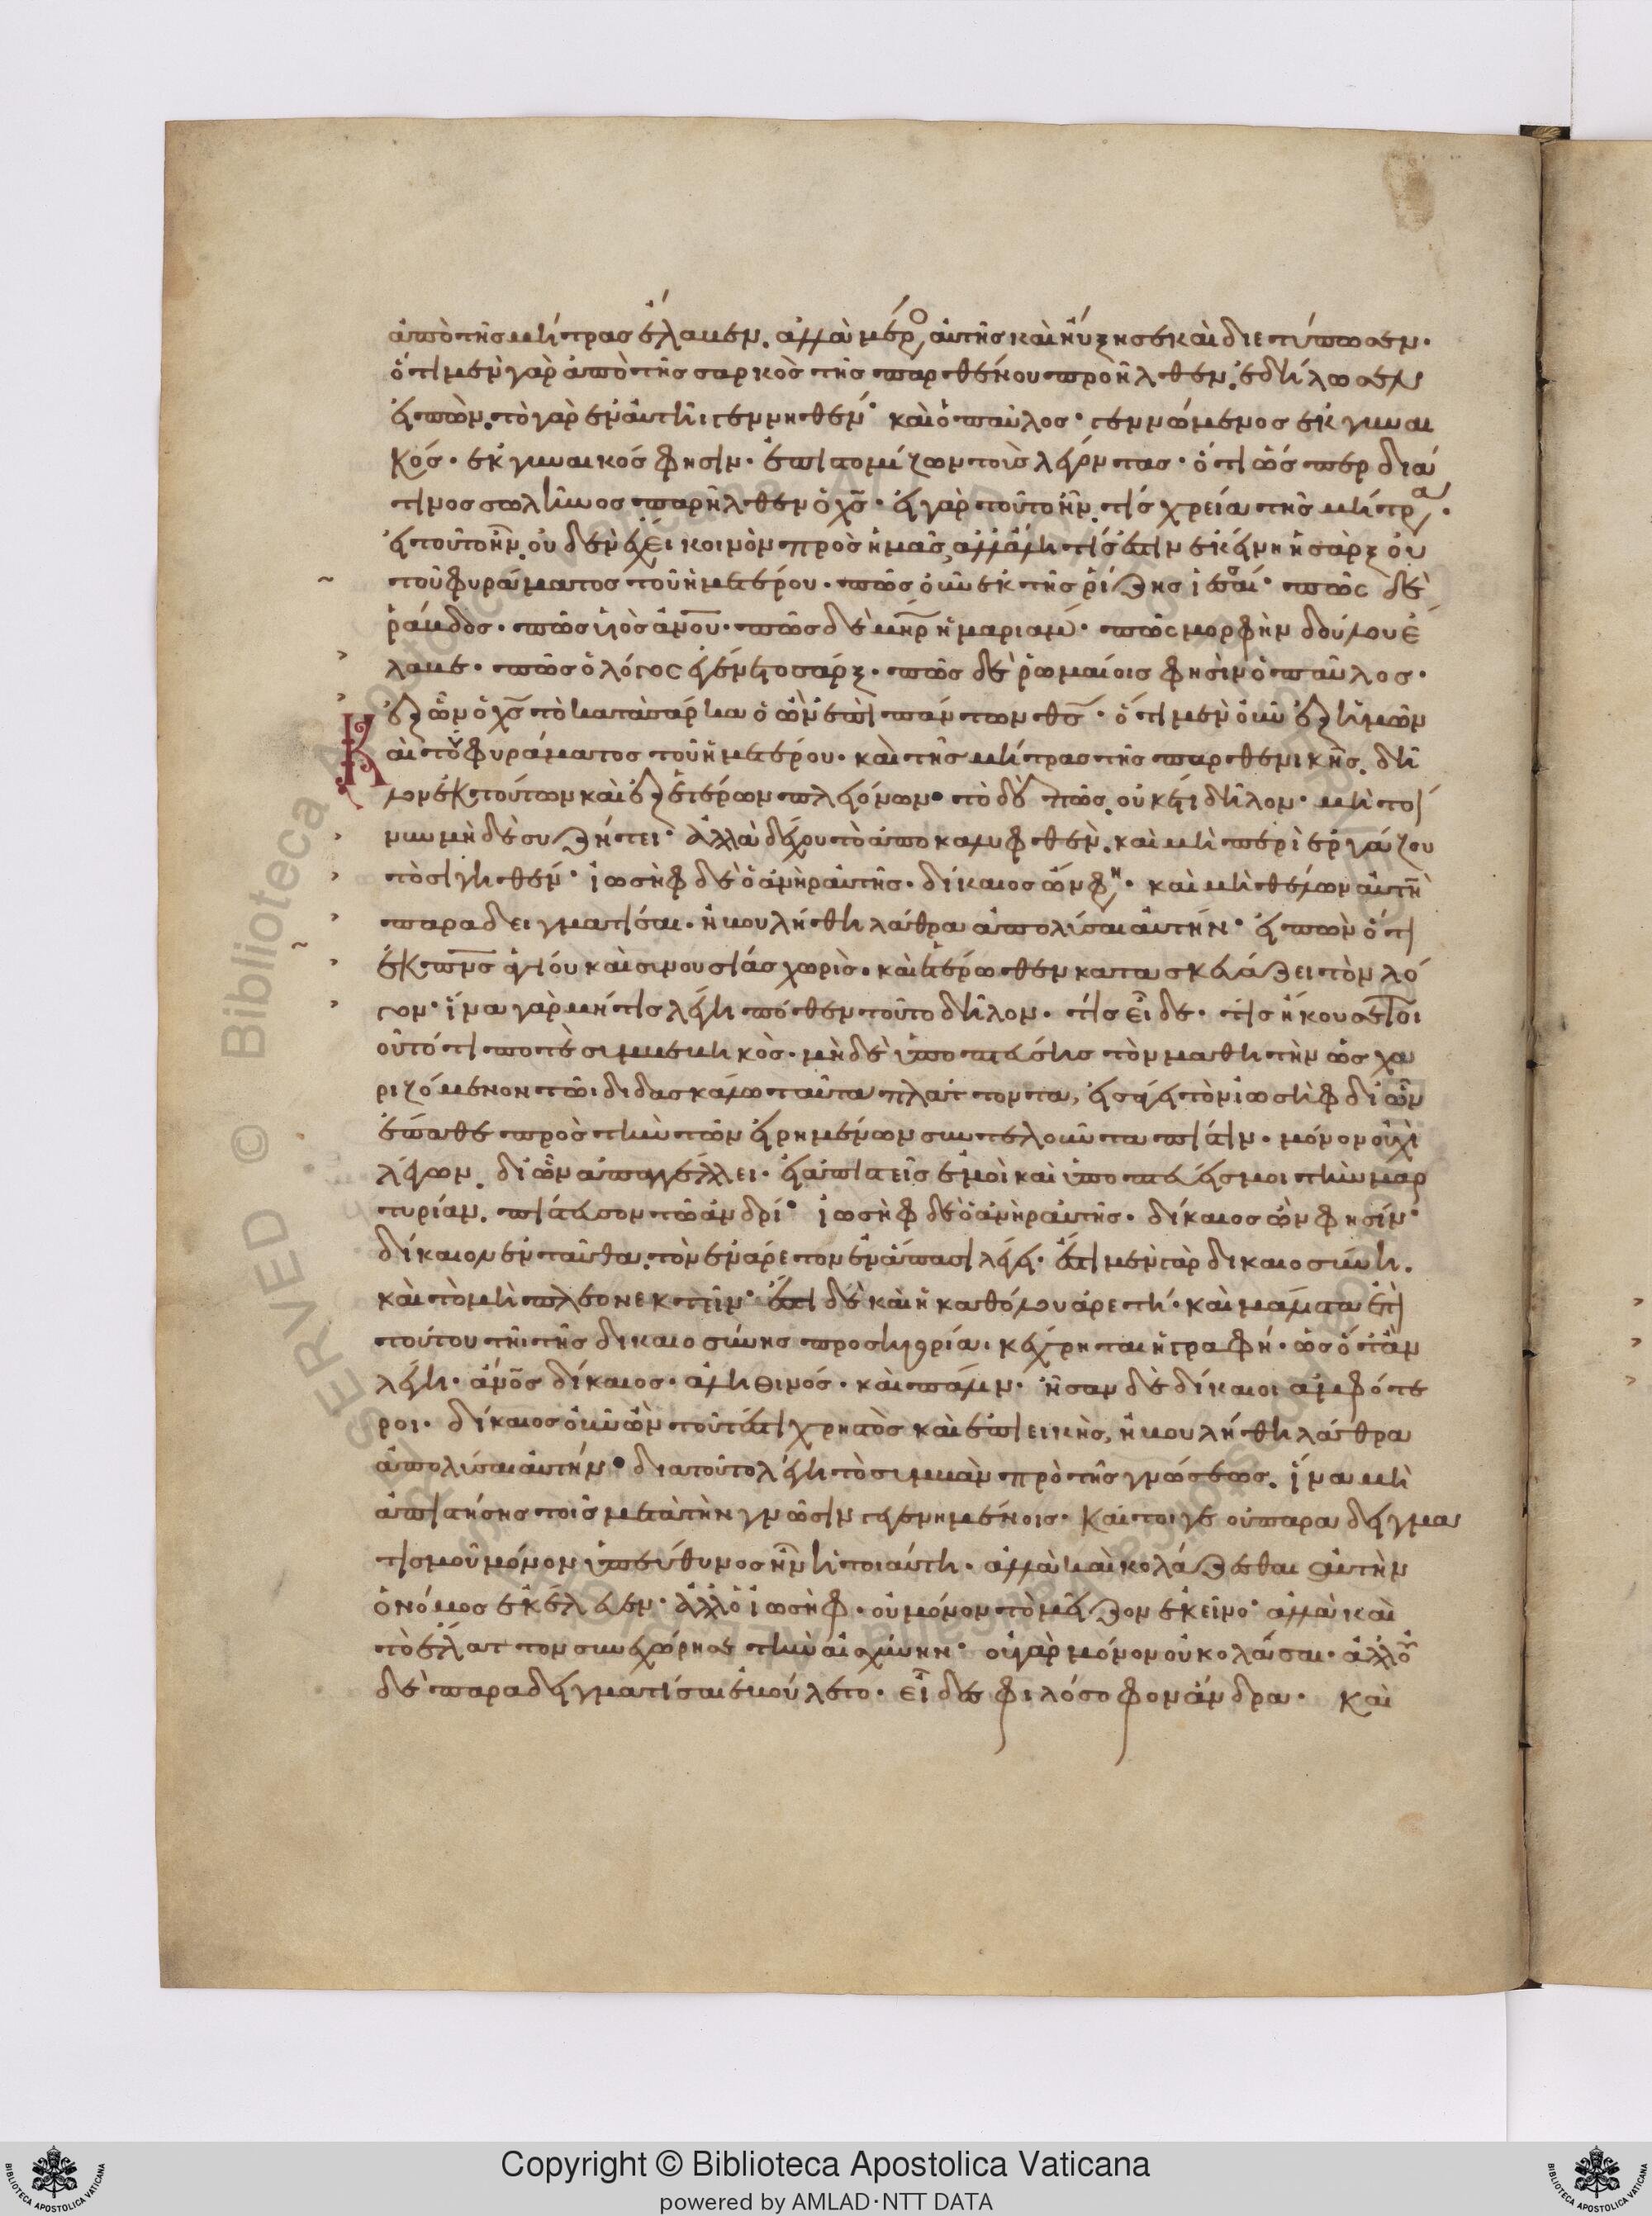 ἀπὸ τῆς μήτρας ἔλαβεν. ἀλλὰ μέρο αὐτῆς καὶ ηὔξησε καὶ διετύπωσεν.
ὅτι μὲν γὰρ ἀπὸ τῆς σαρκὸς τῆς παρθένου προῆλθεν. ἐδήλωσεν
εἰπὼν. τὸ γὰρ ἐν αὐτῆι γεννηθέν· καὶ ὁ παῦλος· γεννώμενος ἐκ γυναι
κός. ἐκ γυναικός φησιν. ἐπιστομίζων τοὺς λέγοντας. ὅτι ὥσπερ διά
τινος σωλῆνος παρῆλθεν ὁ χς. εἰ γὰρ τοῦτο ἦν. τίς χρεία τῆς μήτρα.
εἰ τοῦτο ἦν. οὐδὲν ἔχει κοινὸν πρὸς ἡμᾶς, ἀλλ' ἄλλη τίς ἐστιν ἐκείνη ἡ σὰρξ οὐ
τοῦ φυράματος τοῦ ἡμετέρου. πῶς οὖν ἐκ τῆς ῥίζης ἰεσσαί· πῶς δὲ
ῥάβδος. πῶς υἱὸς ἀνου. πῶς δὲ μηρ ἡ μαριάμ. πῶς μορφὴν δούλου ἔ
λαβε. πῶς ὁ λόγος ἐγένετο σάρξ. πῶς δὲ ῥωμαίοις φησὶν ὁ παῦλος.
ἐξ ὧν ὁ χς τὸ κατὰ σάρκα ὁ ὢν ἐπὶ πάντων θς. ὅτι μὲν οὖν ἐξ ἡμῶν
Καὶ τοῦ φυράματος τοῦ ἡμετέρου. καὶ τῆς μήτρας τῆς παρθενικῆς. δῆ
λον ἐκ τούτων καὶ ἐξ ἑτέρων πλειόνων· τὸ δὲ πῶς. οὐκέτι δῆλον. μὴ τοί
νυν μηδὲ σὺ ζήτει· ἀλλὰ δέχου τὸ ἀποκαλυφθὲν. καὶ μὴ περιεργάζου
τὸ σιγηθέν· ἰωσὴφ δὲ ὁ ἀνὴρ αὐτῆς. δίκαιος ὢν φη. καὶ μὴ θέλων αὐτὴν
παραδειγματίσαι. ἠβουλήθη λάθρα ἀπολῦσαι αὐτήν· εἰπὼν ὅτι
ἐκ πνς ἁγίου καὶ συνουσίας χωρὶς. καὶ ἑτέρωθεν κατασκευάζει τὸν λό
γον· ἵνα γὰρ μή τις λέγηι πόθεν τοῦτο δῆλον. τίς εἶδε. τίς ἤκουσε τοι
οῦτό τι ποτὲ συμβεβηκὸς. μηδὲ ὑποπτεύσηις τὸν μαθητὴν ὡς χα
ριζόμενον τῶι διδασκάλω ταῦτα πλάττοντα, εἰσάγει τὸν ἰωσὴφ δι' ὧν
ἔπαθε πρὸς τὴν τῶν εἰρημένων συντελοῦντα πίστιν. μόνον οὐχὶ
λέγων. δι' ὧν ἀπαγγέλλει. εἰ ἀπιστεῖς ἐμοὶ καὶ ὑποπτεύεις μοι τὴν μαρ
τυρίαν. πίστευσον τῶ ἀνδρί· ἰωσὴφ δὲ ὁ ἀνὴρ αὐτῆς. δίκαιος ὢν φησίν·
δίκαιον ἐνταῦθα. τὸν ἐνάρετον ἐν ἅπασι λέγει. ἔστι μὲν γὰρ δικαιοσύνη.
καὶ τὸ μὴ πλεονεκτεῖν· ἔστι δὲ καὶ ἡ καθόλου ἀρετή. καὶ μάλιστα ἐπὶ
τούτου τῆι τῆς δικαιοσύνης προσηγορία. κέχρηται ἡ γραφή. ὡς ὅταν
λέγηι. ἀνος δίκαιος. ἀληθινός. καὶ πάλιν. ἦσαν δὲ δίκαιοι ἀμφότε
ροι. δίκαιος οὖν ὢν τουτέστι χρηστὸς καὶ ἐπιεικὴς, ἠβουλήθη λάθρα
ἀπολῦσαι αὐτήν· διατοῦτο λέγει τὸ συμβὰν πρὸ τῆς γνώσεως. ἵνα μὴ
ἀπιστήσης τοῖς μετὰ τὴν γνῶσιν γεγενημένοις. καίτοιγε οὐ παραδειγμα
τισμοῦ μόνον ὑπεύθυνος ἦν ἡ τοιαύτη. ἀλλὰ καὶ κολάζεσθαι αὐτὴν
ὁ νόμος ἐκέλευεν. ἀλλ' ὁ ἰωσὴφ. οὐ μόνον τὸ μεῖζον ἐκεῖνο· ἀλλὰ καὶ
τὸ ἔλαττον συνεχώρησε τὴν αἰσχύνην· οὐ γὰρ μόνον οὐ κολάσαι. ἀλλ' οὐ
δὲ παραδειγματίσαι ἐβούλετο. εἶδες φιλόσοφον ἄνδρα. καὶ
Copyright © Biblioteca Apostolica Vaticana
powered by AMLAD·NTT DATA